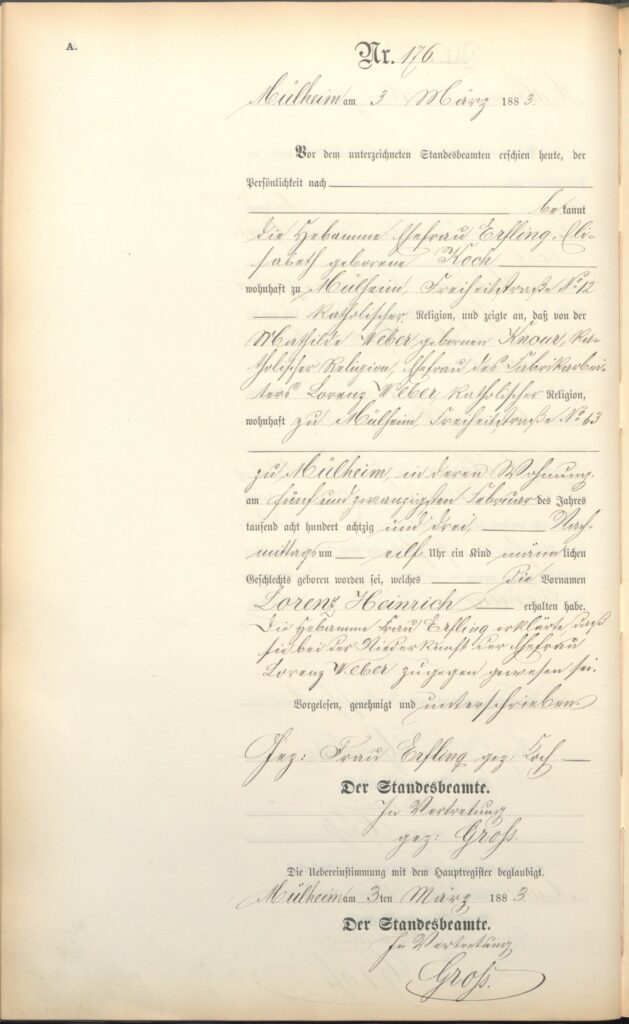 A.
Nr. 176.
Mülheim am 3 März 1883.
Vor dem unterzeichneten Standesbeamten erschien heute, der
Persönlichkeit nach
bekannt
die Hebamme Ehefrau Erfling, Eli-
sabeth geborene Koch
wohnhaft zu Mülheim, Freiheitstraße No 12
katholischer Religion, und zeigte an, daß von der
Mathilde Weber gebornen Knour, ka-
tholischer Religion, Ehefrau des Fabrikarbei-
ters Lorenz Weber, katholischer Religion,
wohnhaft zu Mülheim, Freiheitstraße No 63
zu Mülheim, in deren Wohnung
am fünf und zwanzigsten Februar des Jahres
tausend acht hundert achtzig und drei Nach-
mittags um eilf Uhr ein Kind männlichen
Geschlechts geboren worden sei, welches die Vornamen
Lorenz Heinrich erhalten habe.
Die Hebamme Frau Erfling erklärte daß
sie bei der Niederkunft der Ehefrau
Lorenz Weber zugegen gewesen sei.
Vorgelesen, genehmigt und unterschrieben
Gez: Frau Erfling gez: Koch
Der Standesbeamte.
In Vertretung
gez: Groß.
Die Uebereinstimmung mit dem Hauptregister beglaubigt.
Mülheim am 3ten März 1883.
Der Standesbeamte.
In Vertretung
Groß.